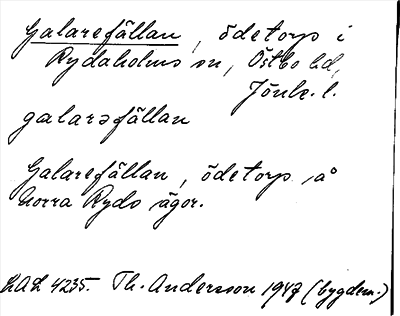 Galarefällan, ödetorp i
Rydaholms sn, Östbo hd,
Jönk. l.
galarəfällan
Galarefällan, ödetorp å
Norra Ryds ägor.
LAL 4235. Th. Andersson 1947 (bygdem.)